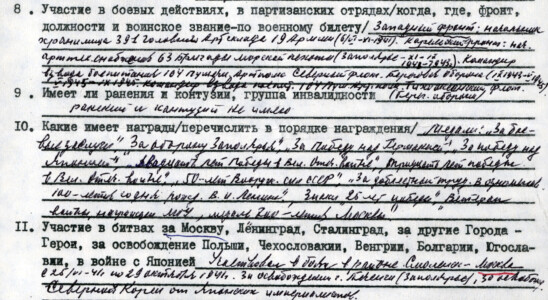 8. Участие в боевых действиях, в партизанских отрядах/когда, где, фронт,
должности и воинское звание-по военному билету/ Западный фронт: начальник
хранилища 391 головного артсклада 19 Армии Карельский фронт: нач.
артснабжения 63 бригады морской пехоты (Заполярье- Командир
взвода боепитания 104 пушечн. Северный флот.
Командир взвода
9. Имеет ли ранения и контузии, группа инвалидности
ранений и контузий не имею
10. Какие имеет награды/перечислить в порядке награждения/ Медали: "За бое-
вые заслуги" "За оборону Заполярья", "За победу над Германией", "За победу над
Японией", Двадцать лет Победы в Вел. Отеч. войне", тридцать лет победы
в Вел. Отеч. войне", "50-лет Вооруж. сил СССР" "За доблестный труд. В ознаменов.
100-летия со дня рожд. В.И. Ленина", Знаки "25-лет победы" "Ветеран
войны, медаль 800-летия Москвы"
11. Участие в битвах за Москву, Ленинград, Сталинград, за другие Города -
Герои, за освобождение Польши, Чехословакии, Венгрии, Болгарии, Югосла-
вии, в войне с Японией Участвовал в битве в районе Смоленск - Москва
с 25/VI-41г по 29 октября 1941г. За освобождение г. (Заполярье), за освобожд.
Северной Кореи от Японских империалистов.